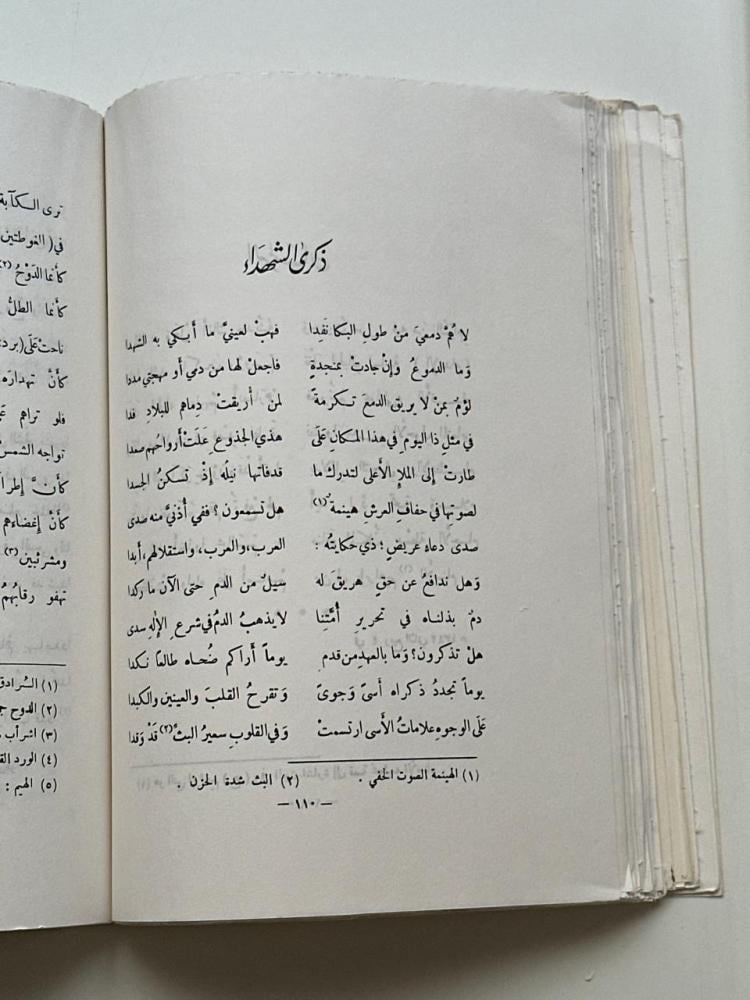 ذكرى الشهداء
لا هُمَّ دمعيَ منْ طولِ البكا نَفِدا فهبْ لعينيَّ ما أبكي به الشهدا
وَما الدموعُ وإنْ جادتْ بمنجدةٍ فاجعلْ لها من دمي أو مهجتي مددا
لؤمٌ بمنْ لا يريق الدمعَ تكرمةً لمن أُريقتْ دِماهم للبلادِ فدا
في مثلِ ذا اليومِ في هذا المكانِ عَلَى هذي الجذوعِ عَلَتْ أرواحُهم صعدا
طارتْ إلى الملإِ الأعلى لتدركَ ما قدفاتها نيلُه إِذْ تسكنُ الجسدا
لصوتِها في حفافِ العرشِ هينمةٌ (١) هل تسمعون؟ ففي أُذنيَّ منه صدى
صدى دعاء عريضٍ؛ ذي حكايتُه: العرب، والعرب، واستقلالهم، أبدا
وَهل ندافعُ عن حقٍ هريقَ له سيلٌ من الدمِ حتى الآن ما ركدا
دمٌ بذلناه في تحريرِ أُمَّتِنا لا يذهبُ الدمُ في شرعِ الإلهِ سدى
هلْ تذكرون؟ وَما بالعهدِ من قدمٍ يوماً أراكم ضُحاه طالعاً نكدا
يوماً تجددُ ذكراه أسىً وَجوىً وَتقرحُ القلبَ والعينين والكبدا
عَلَى الوجوهِ علاماتُ الأسى ارتسمتْ وَفي القلوبِ سعيرُ البثِّ (٢) قَدْ وَقدا
(١) الهينمة الصوت الخفي . (٢) البث شدة الحزن .
— ١١٠ —
ترى الكآبة
في (الغوطتين
كأنما الدَوْحُ (٢)
كأنما الطلُّ
ناحتْ عَلَى (برد
كأنَّ
فلو تراهم
تواجه الشمسَ
كأنَّ
كأنْ إغضاءهم
ومشرئبين (٣)
تهفو رقابُهُم
(١) السرادق
(٢) الدوح
(٣) اشرأب
(٤) الورد
(٥) الهيم :